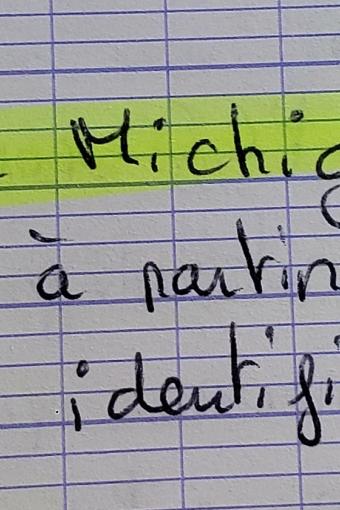 Michig
à partir
identifi